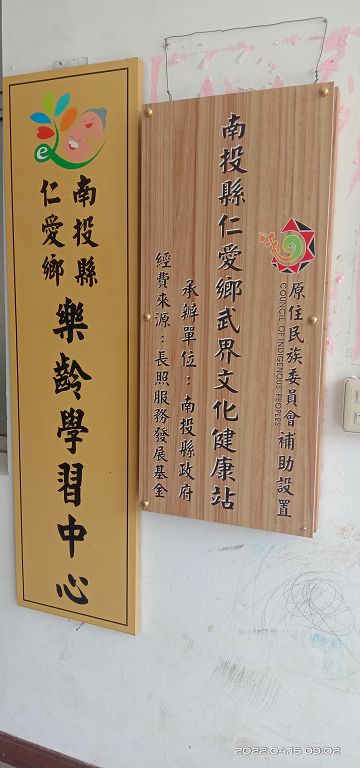 原住民族委員會補助設置
COUNCIL OF INDIGENOUS PEOPLES
南投縣仁愛鄉武界文化健康站
承辦單位：南投縣政府
經費來源：長照服務發展基金
e
南投縣
仁愛鄉
樂齡學習中心
2022.04.15 09:02